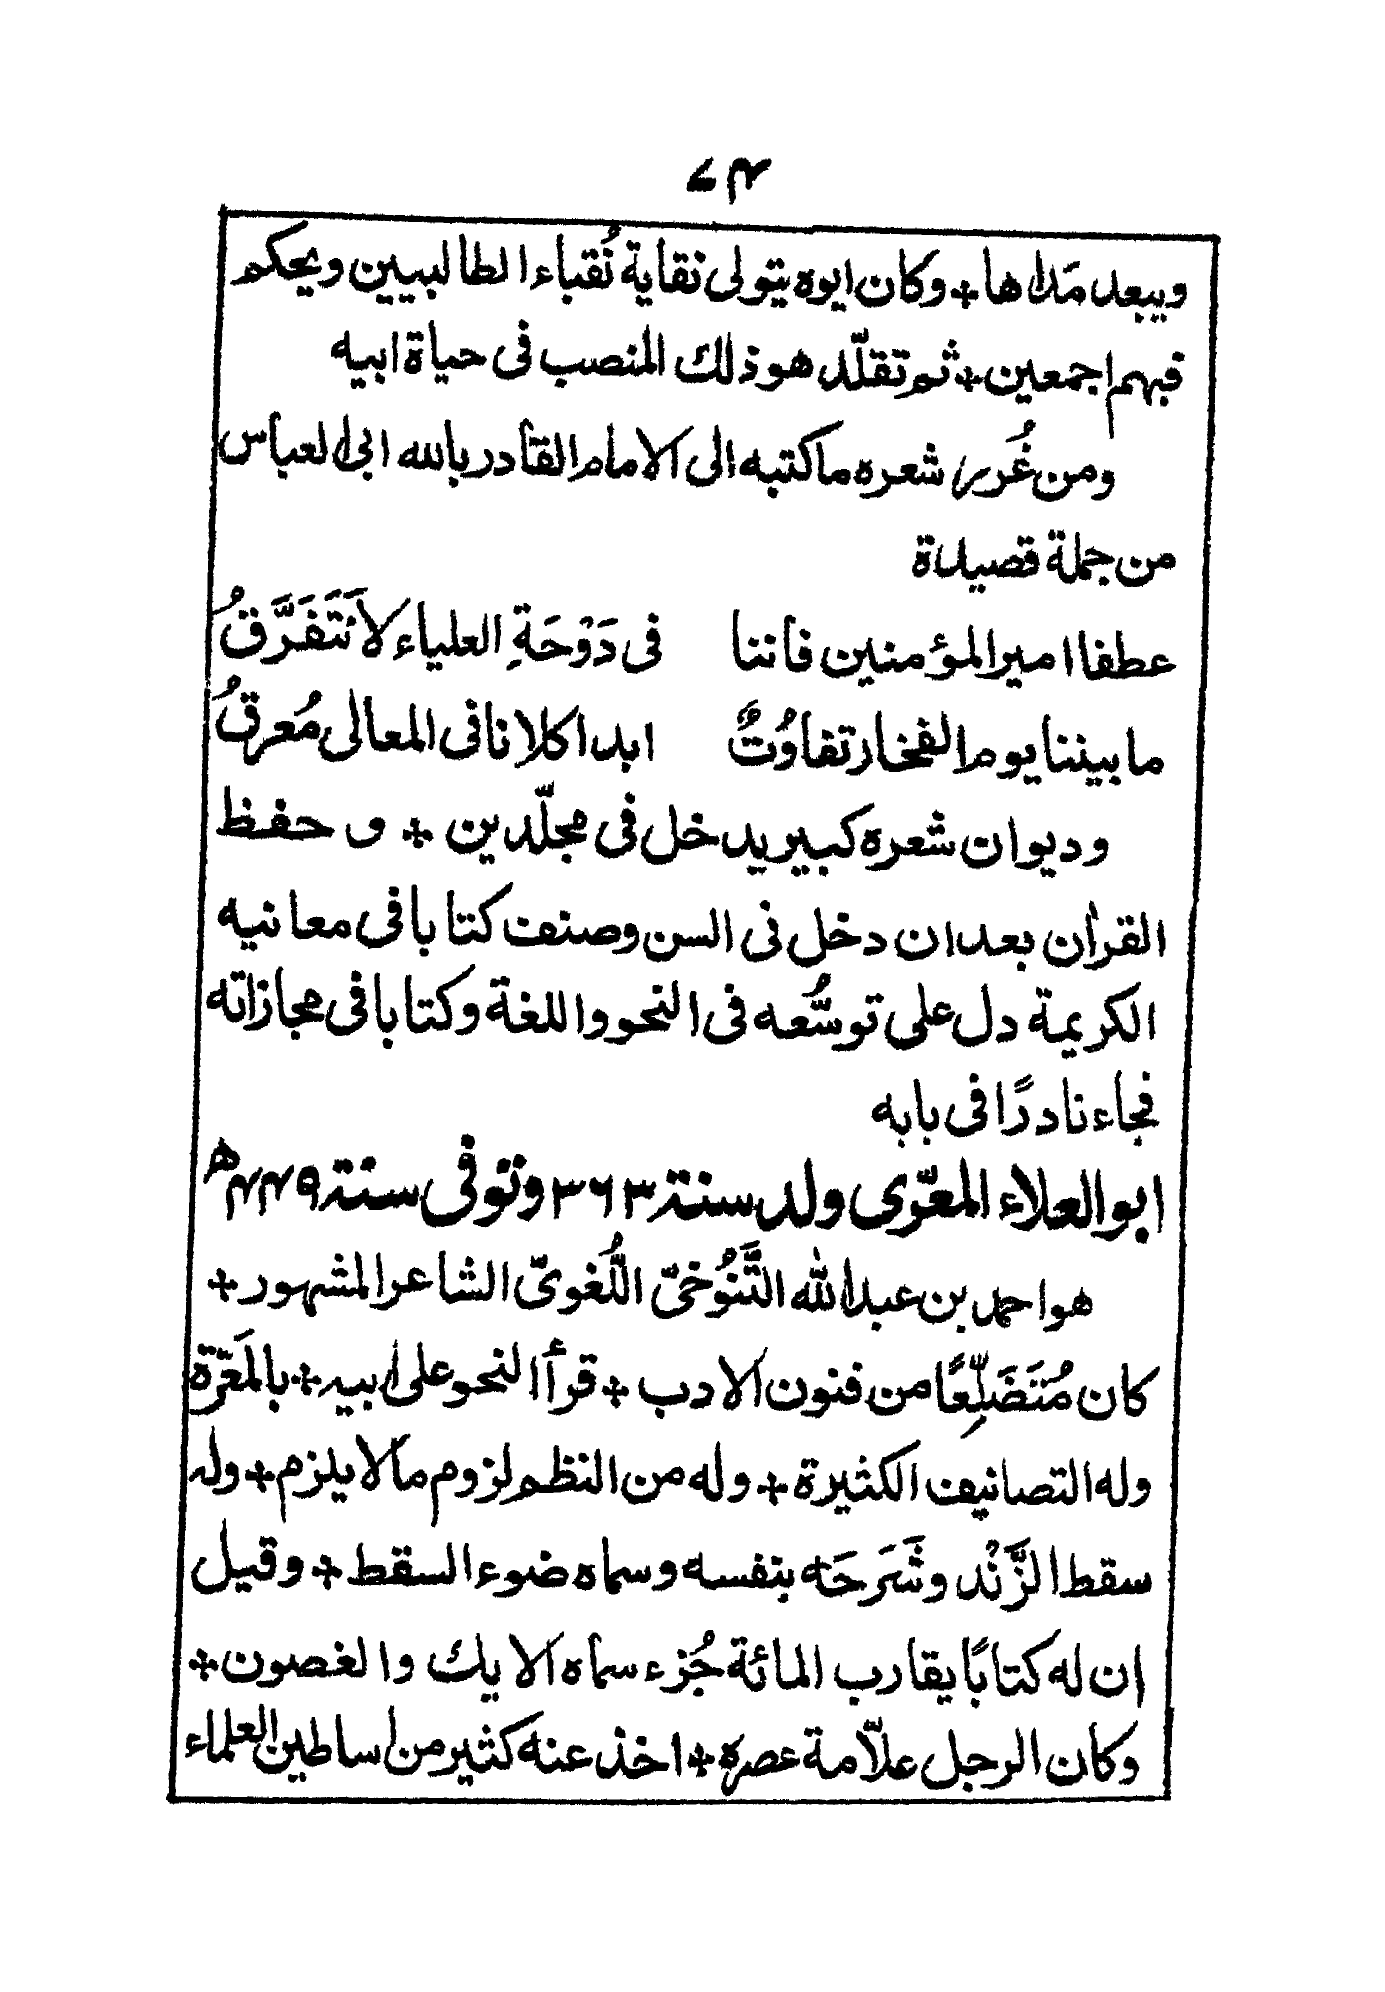 ۷۴
ويبعد مَداها ❊ وكان ابوه يتولى نقاية نُقباء الطالبيين ويحكم
فيهم اجمعين ❊ ثم تقلّد هو ذلك المنصب فى حياة ابيه
ومن غُرر شعره ما كتبه الى الامام القادر بالله ابى العباس
من جملة قصيدة
عطفا امير المؤمنين فاننا فى دَوْحَةِ العلياء لَا نَتَفَرَّقُ
ما بيننا يوم الفخار تفاوُتٌ ابدا كلانا فى المعالى مُعرقُ
وديوان شعره كبير يدخل فى مجلّدين ❊ و حفظ
القرأن بعد ان دخل فى السن وصنف كتابا فى معانيه
الكريمة دل على توسُّعه فى النحو واللغة وكتابا فى مجازاته
فجاء نادرًا فى بابه
ابو العلاء المعرّى ولد سنة ۳۶۳ وتوفى سنة ۴۴۹ھ
هو احمد بن عبدالله التَّنُوخىّ اللُّغوىّ الشاعر المشهور ❊
كان مُتَضَلِّعًا من فنون الادب ❊ قرأ النحو على ابيه ❊ بالمَعَرّة
وله التصانيف الكثيرة ❊ وله من النظم لزوم ما لا يلزم ❊ وله
سقط الزَّنْد وشَرَحَه بنفسه وسماه ضوء السقط ❊ وقيل
ان له كتابًا يقارب المائة جُزء سماه الايك والغصون ❊
وكان الرجل علّامة عصره ❊ اخذ عنه كثير من اساطين العلماء